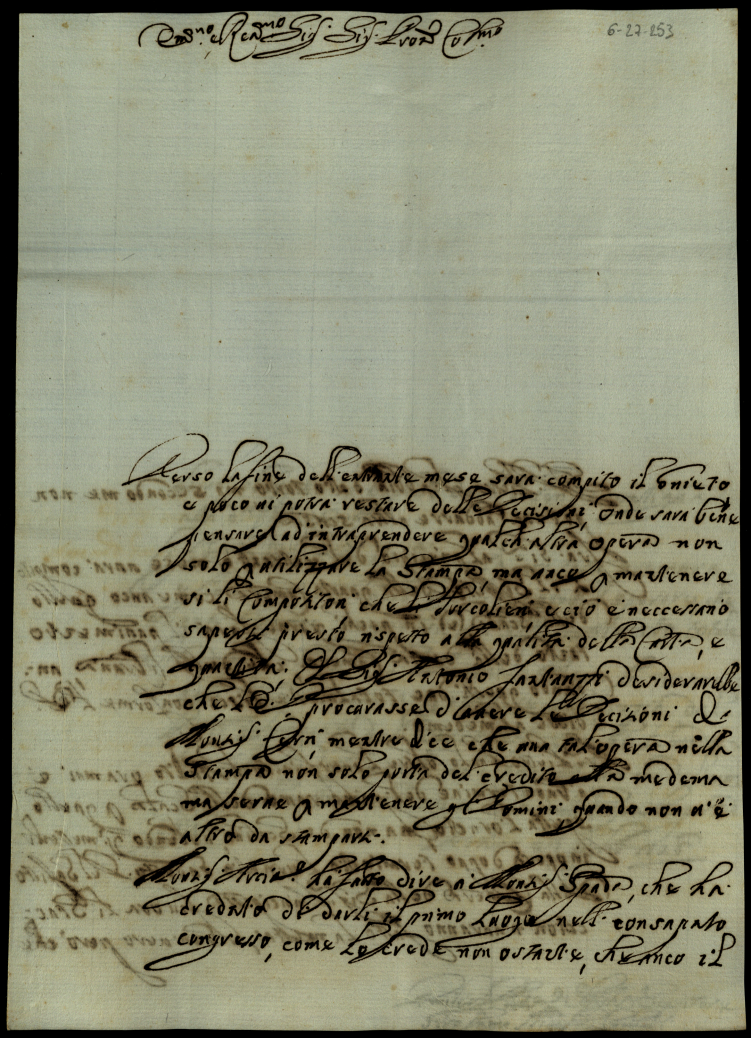 Em.mo e Rev.mo Sig. Sig. Prone Col.mo
6-27-253
Verso la fine dell'entrante mese sarà compito il
e poco vi potrà restare delle Decisioni, onde sarà bene
pensare ad intraprendere qualch'altra opera non
solo p utilizzare la Stampa, ma anco p mantenere
si li Compositori che li Torcolieri, e ciò è neccessario
sapersi presto rispetto alla qualità della Carta, e
quantità; Il Sig. Antonio desiderarebbe
che V.E. procurasse d'havere le Decizioni di
Monsig. mentre dice che una tal opera nella
Stampa non solo porta del credito alla medema
ma serve p mantenere gl'Homini, quando non vi è
altro da stampare.
Monsig. ha fatto dire a Monsig. Spada, che ha
creduto di darli il primo luogo nell consaputo
congresso, come lo crede non ostante, che anco il